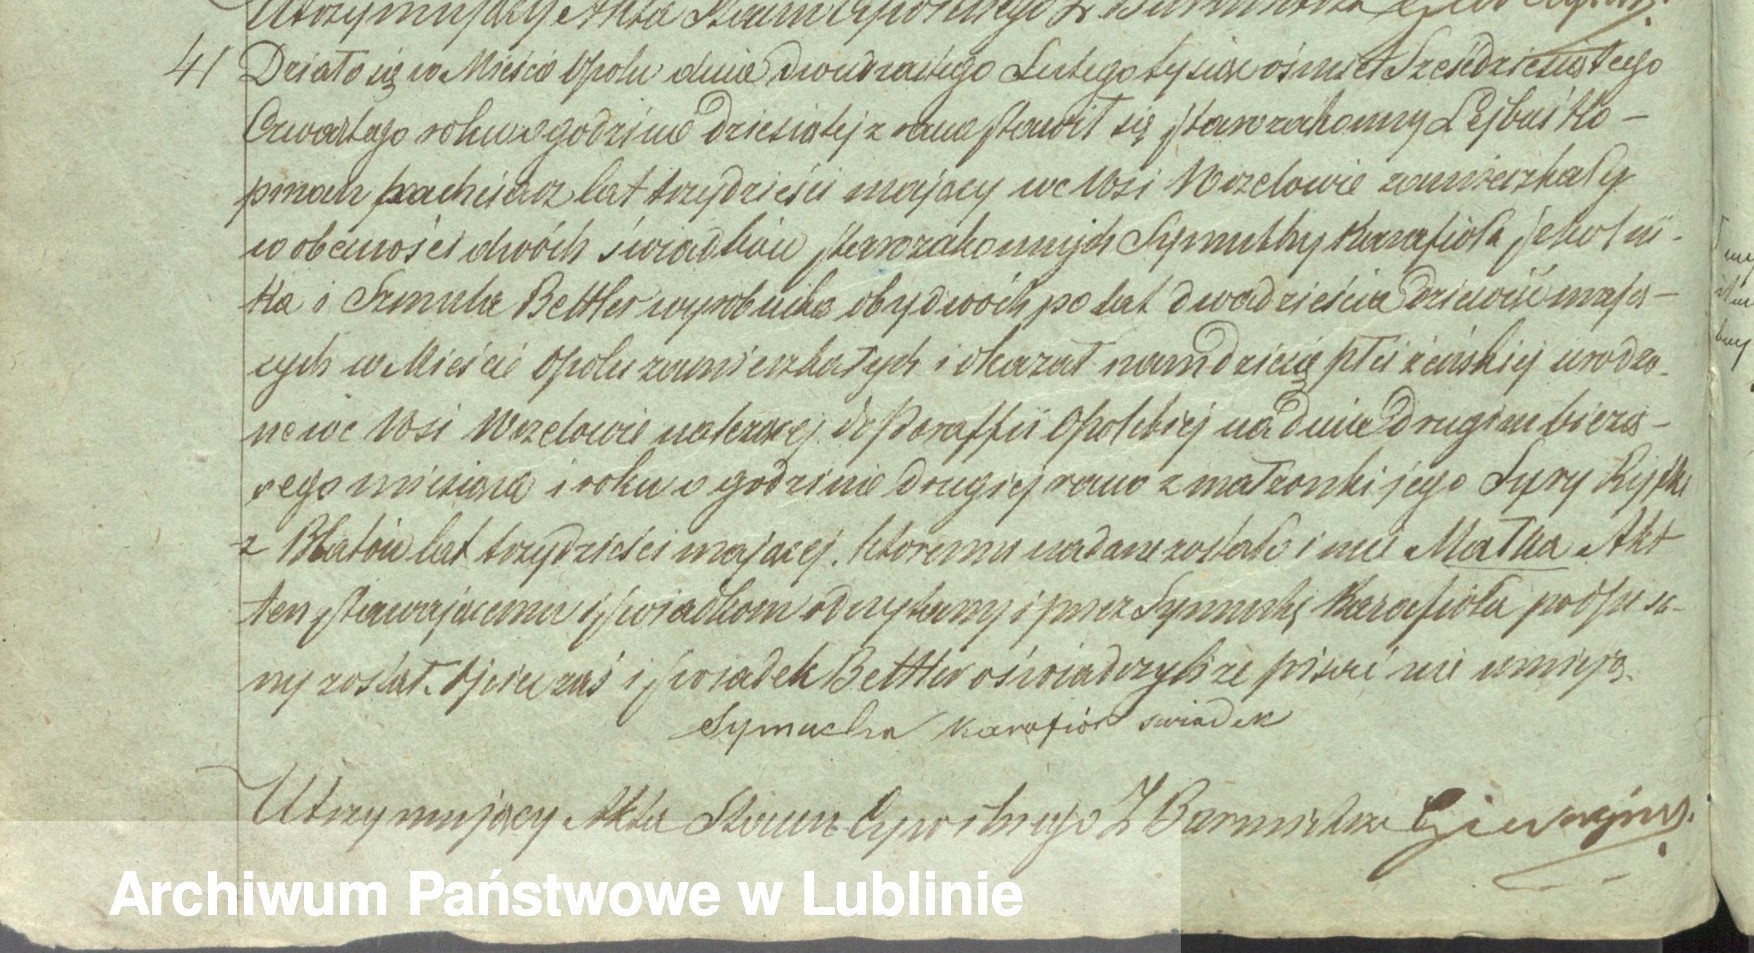 Utrzymujący Akta Stanu Cywilnego Z. Burmistrza
41 Działo się w Mieście Opolu dnia dwudziestego Lutego tysiąc ośmset Sześdziesiątego
Czwartego roku o godzinie dziesiątej z rana stawił się starozakonny Lejbuś Ko-
pman pachciarz lat trzydzieści mający we Wsi Wrzelowie zamieszkały
w obecności dwóch świadków starozakonnych Symuchy Karafioła szkolni-
ka i Szmula Bettler wyrobnika obydwóch po lat dwadzieścia dziewięć mają-
cych w Mieście Opolu zamieszkałych i okazał nam dziecię płci żeńskiej urodzo-
ne we Wsi Wrzelowie należącej do Paraffii Opolskiej na dniu drugim bieżą-
cego miesiąca i roku o godzinie drugiej rano z małżonki jego Sury Ryfki
z Blatów lat trzydzieści mającej. któremu nadane zostało imie Małka Akt
ten stawającemu i świadkom odczytany i przez Symuchę Karafioła podpisa-
ny został. Ojciec zaś i świadek Bettler oświadczyli że pisać nie umieją.
Symucha Karafioł swiadek
Utrzymujący Akta Stanu Cywilnego Z Burmistrza
Archiwum Państwowe w Lublinie